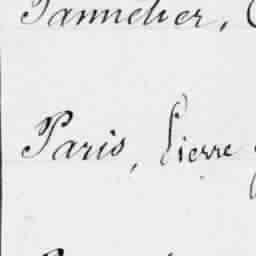 Pannelier,
Paris, Pierre